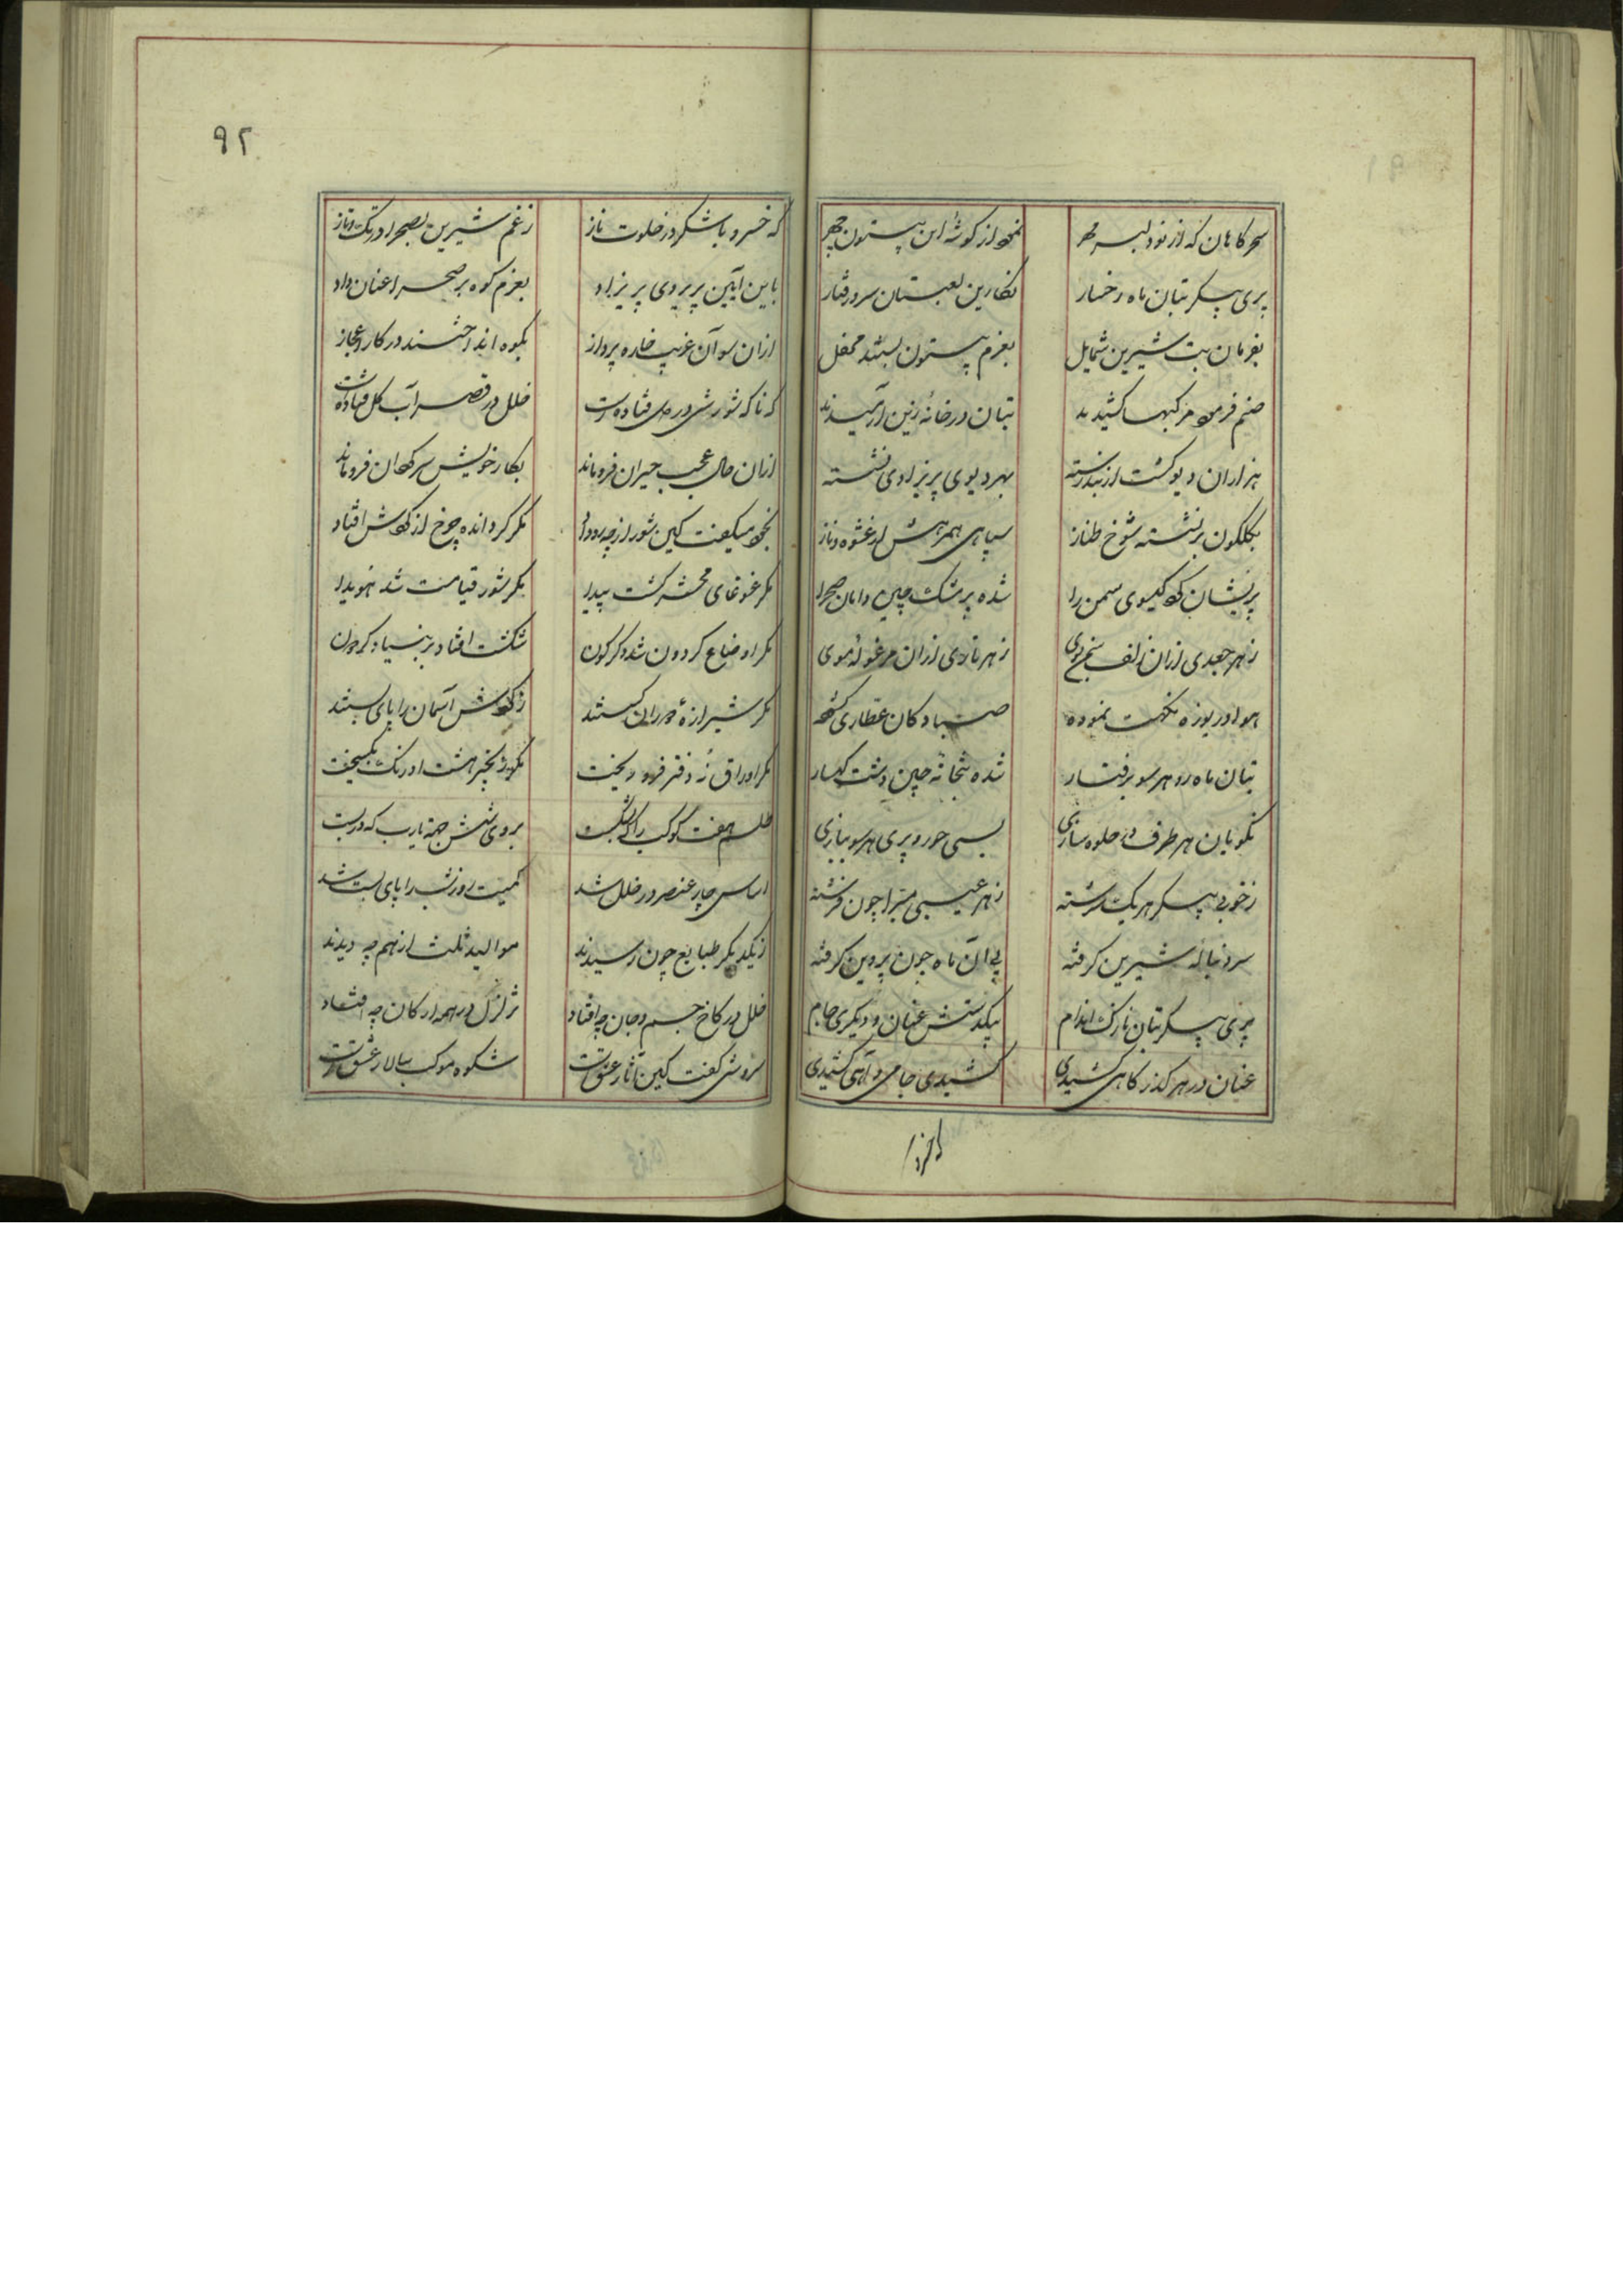 ۹۲
سحرکاهان که از نو دلبر مهر نمود از کوشه این بیستون چهر
پری پیکر بتان ماه رخسار نکارین لعبتان سرو رفتار
بفرمان بت شیرین شمایل بعزم بیستون بستند محمل
صنم فرمود مرکبها کشیدند بتان در خانه زین آرمیدند
هزاران دیو کشت از بند رسته بهر دیوی پریزادی نشسته
بکلکون برنشسته شوخ طناز سپاهی همرهش از عشوه و ناز
پریشان کرد کیسوی سمن را شده پر مشک چین دامان صحرا
ز هر جعدی ازان زلف سمن بوی ز هر تاری ازان مرغوله موی
هوا دریوزه نکهت نموده صبا دکان عطاری کشوده
بتان ماه رو هر سو برفتار شده بتخانه چین دشت کهسار
نکویان هر طرف در جلوه سازی بسی حور و پری هر سو ببازی
ز خوبی پیکر هر یک سرشته ز هر عیبی مبرا چون فرشته
سر دنباله شیرین کرفته پی آن ماه چون پروین کرفته
پری پیکر بتان نازک اندام بیکدستش عنان و دیکری جام
عنان در هر کذر کاهی کشیدی کشیدی جامی و آهی کشیدی
که خسرو با شکر در خلوت ناز ز غم شیرین بصحرا در تک و تاز
باین آیین پریروی پریزاد بعزم کوه بر صحرا عنان داد
ازان سو آن غریب خاره پرداز بکوه انداختند در کار اعجاز
که ناکه شورشی در فتاده است خلل در قصر آب کل فتاده است
ازان حال عجب حیران فروماند بکار خویش سرکردان فروماند
بخود میکفت کین شور از چه رو داد مکر کردانده چرخ از کردش افتاد
مکر غوغای محشر کشت پیدا مکر شور قیامت شد هویدا
مکر اوضاع کردون شد دکرکون شکست افتاد بر بنیاد کردون
مکر شیرازه دوران کسستند ز کردش آسمان را پای بستند
مکر اوراق نه دفتر فرو ریخت مکر زنجیر هشت اورنک بکسیخت
طلسم هفت کوکب را که بشکست بروی شش جهة یارب که در بست
اساس چار عنصر در خلل شد کمیت روز شب را پای شد
ز یکدیکر طبایع چون رسیدند موالید ثلث از هم چه دیدند
خلل در کاخ جسم و جان چه افتاد تزلزل در همه ارکان چه افتاد
سروشی کفت کین آثار عشقست شکوه موکب سالار عشقست
که خسرو